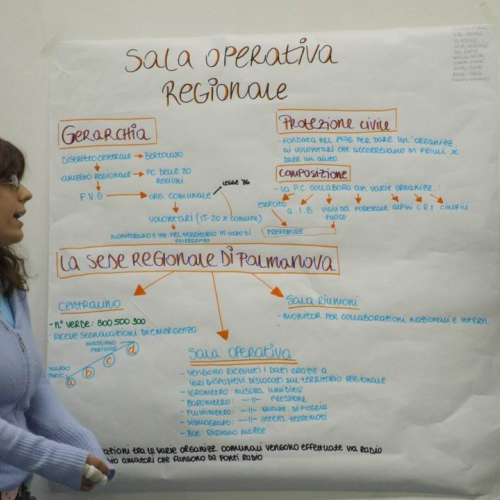 SALA OPERATIVA
REGIONALE
GERARCHIA
DISTRETTO CENTRALE → BERTOLASO
REGIONALE → PC DELLE 20
REGIONI
F.V.G → ORG. COMUNALE
LEGGE '86
VOLONTARI (15-20 X COMUNE)
MONITORANO NEL TERRITORIO IN CASO DI
PROTEZIONE CIVILE
- FONDATA NEL 1976 PER DARE UN ORGANIZZ.
AI VOLONTARI CHE ACCORREVANO IN FRIULI X
DARE UN AIUTO
COMPOSIZIONE
- LA P.C. COLLABORA CON VARIE ORGANIZZ.:
ESERCITO A.I.B VIGILI DEL FUOCO FORESTALE ALPINI C.R.I
PREFETTURE
LA SEDE REGIONALE DI PALMANOVA
CENTRALINO
- N° VERDE: 800 500 300
- RICEVE SEGNALAZIONI DI EMERGENZA
MASSIMO
a b c d
SALA RIUNIONI
- MONITOR PER COLLABORAZIONI NAZIONALI E INTERN.
SALA OPERATIVA
- VENGONO RICEVUTI I DATI GRAZIE A
VARI DISPOSITIVI DISLOCATI SUL TERRITORIO REGIONALE
- IGROMETRO: MISURA UMIDITA'
- BAROMETRO: -||- PRESSIONE
- PLUVIOMETRO: -||- QUANT. DI PIOGGIA
- SISMOGRAFO: -||- INTENS. TERREMOTI
- BOE: MAREE
TRA LE VARIE ORGANIZZ. COMUNALI VENGONO EFFETTUATE VIA RADIO
AMATORI CHE FUNGONO DA PONTI RADIO